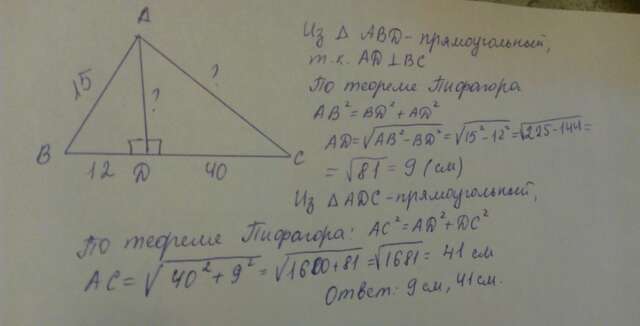 A
15
?
?
B
12
D
40
C
Из △ ABD - прямоугольный,
т.к. AD ⊥ BC
По теореме Пифагора
AB² = BD² + AD²
AD = √AB² - BD² = √15² - 12² = √225 - 144 =
= √81 = 9 (см)
Из △ ADC - прямоугольный,
По теореме Пифагора: AC² = AD² + DC²
AC = √40² + 9² = √1600 + 81 = √1681 = 41 см
Ответ: 9 см, 41 см.